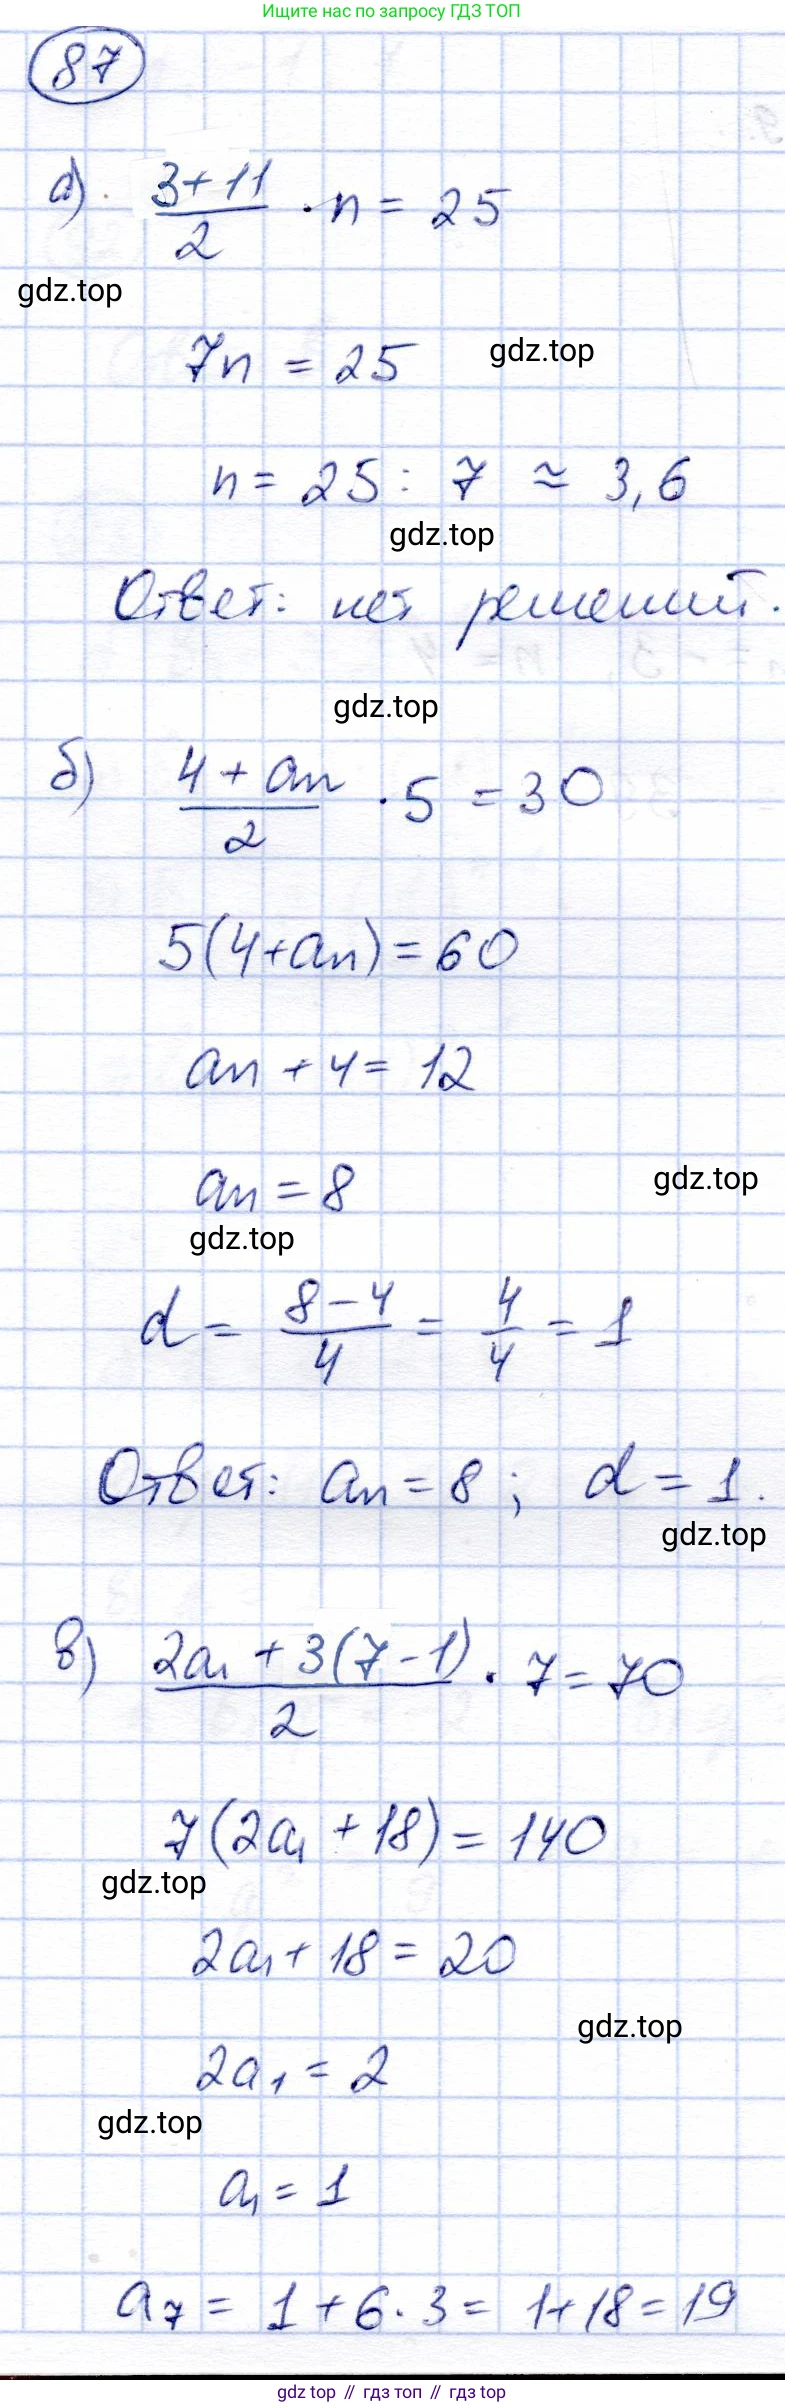 Ищите нас по запросу ГДЗ ТОП
87
а) (3+11)/2 · n = 25
gdz.top
7n = 25
gdz.top
n = 25 : 7 ≈ 3,6
gdz.top
Ответ: нет решений.
gdz.top
б) (4 + an)/2 · 5 = 30
5(4+an) = 60
an + 4 = 12
an = 8
gdz.top
gdz.top
d = (8-4)/4 = 4/4 = 1
Ответ: an = 8 ; d = 1.
gdz.top
в) (2a₁ + 3(7-1))/2 · 7 = 70
7(2a₁ + 18) = 140
gdz.top
2a₁ + 18 = 20
gdz.top
2a₁ = 2
gdz.top
a₁ = 1
a₇ = 1 + 6 · 3 = 1+18 = 19
gdz top // гдз топ // gdz top